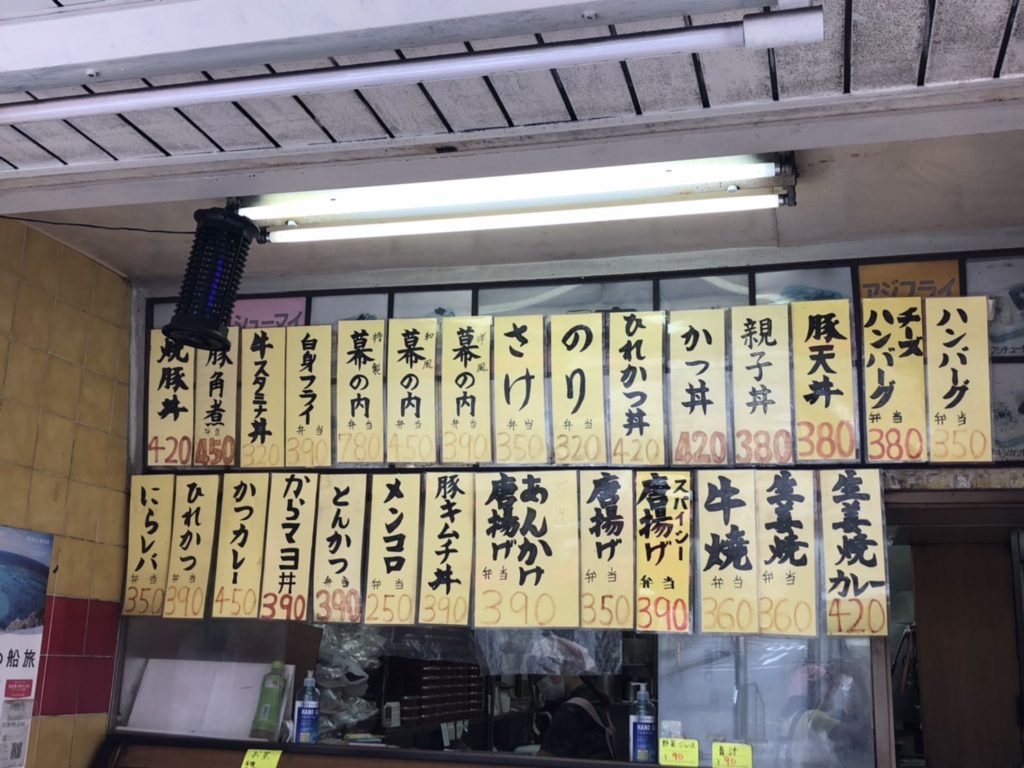 シューマイ
アジフライ
ハンバーグ
弁当
350
チーズ
ハンバーグ
弁当
380
豚天丼
380
親子丼
380
かつ丼
420
ひれかつ丼
420
のり
弁当
320
さけ
弁当
350
洋風
幕の内
弁当
390
和風
幕の内
弁当
450
特製
幕の内
弁当
780
白身フライ
弁当
390
牛スタミナ丼
320
豚角煮
弁当
450
焼豚丼
420
生姜焼
カレー
420
生姜焼
弁当
360
牛焼
弁当
360
スパイシー
唐揚げ
弁当
390
唐揚げ
弁当
350
あんかけ
唐揚げ
弁当
390
豚キムチ丼
390
メンコロ
弁当
250
とんかつ
弁当
390
からマヨ丼
390
かつカレー
450
ひれかつ
弁当
390
にらレバ
弁当
350
の船旅
お茶
野菜ジュース
90
青汁
90